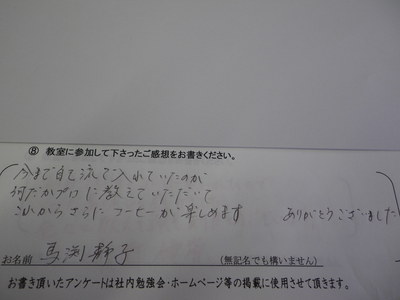 ⑧ 教室に参加して下さったご感想をお書きください。
今まで自己流で入れていたのが
何だかプロに教えていただいて
これからさらにコーヒーが楽しめます ありがとうございました
お名前 馬渕静子 (無記名でも構いません)
お書き頂いたアンケートは社内勉強会・ホームページ等の掲載に使用させて頂きます。